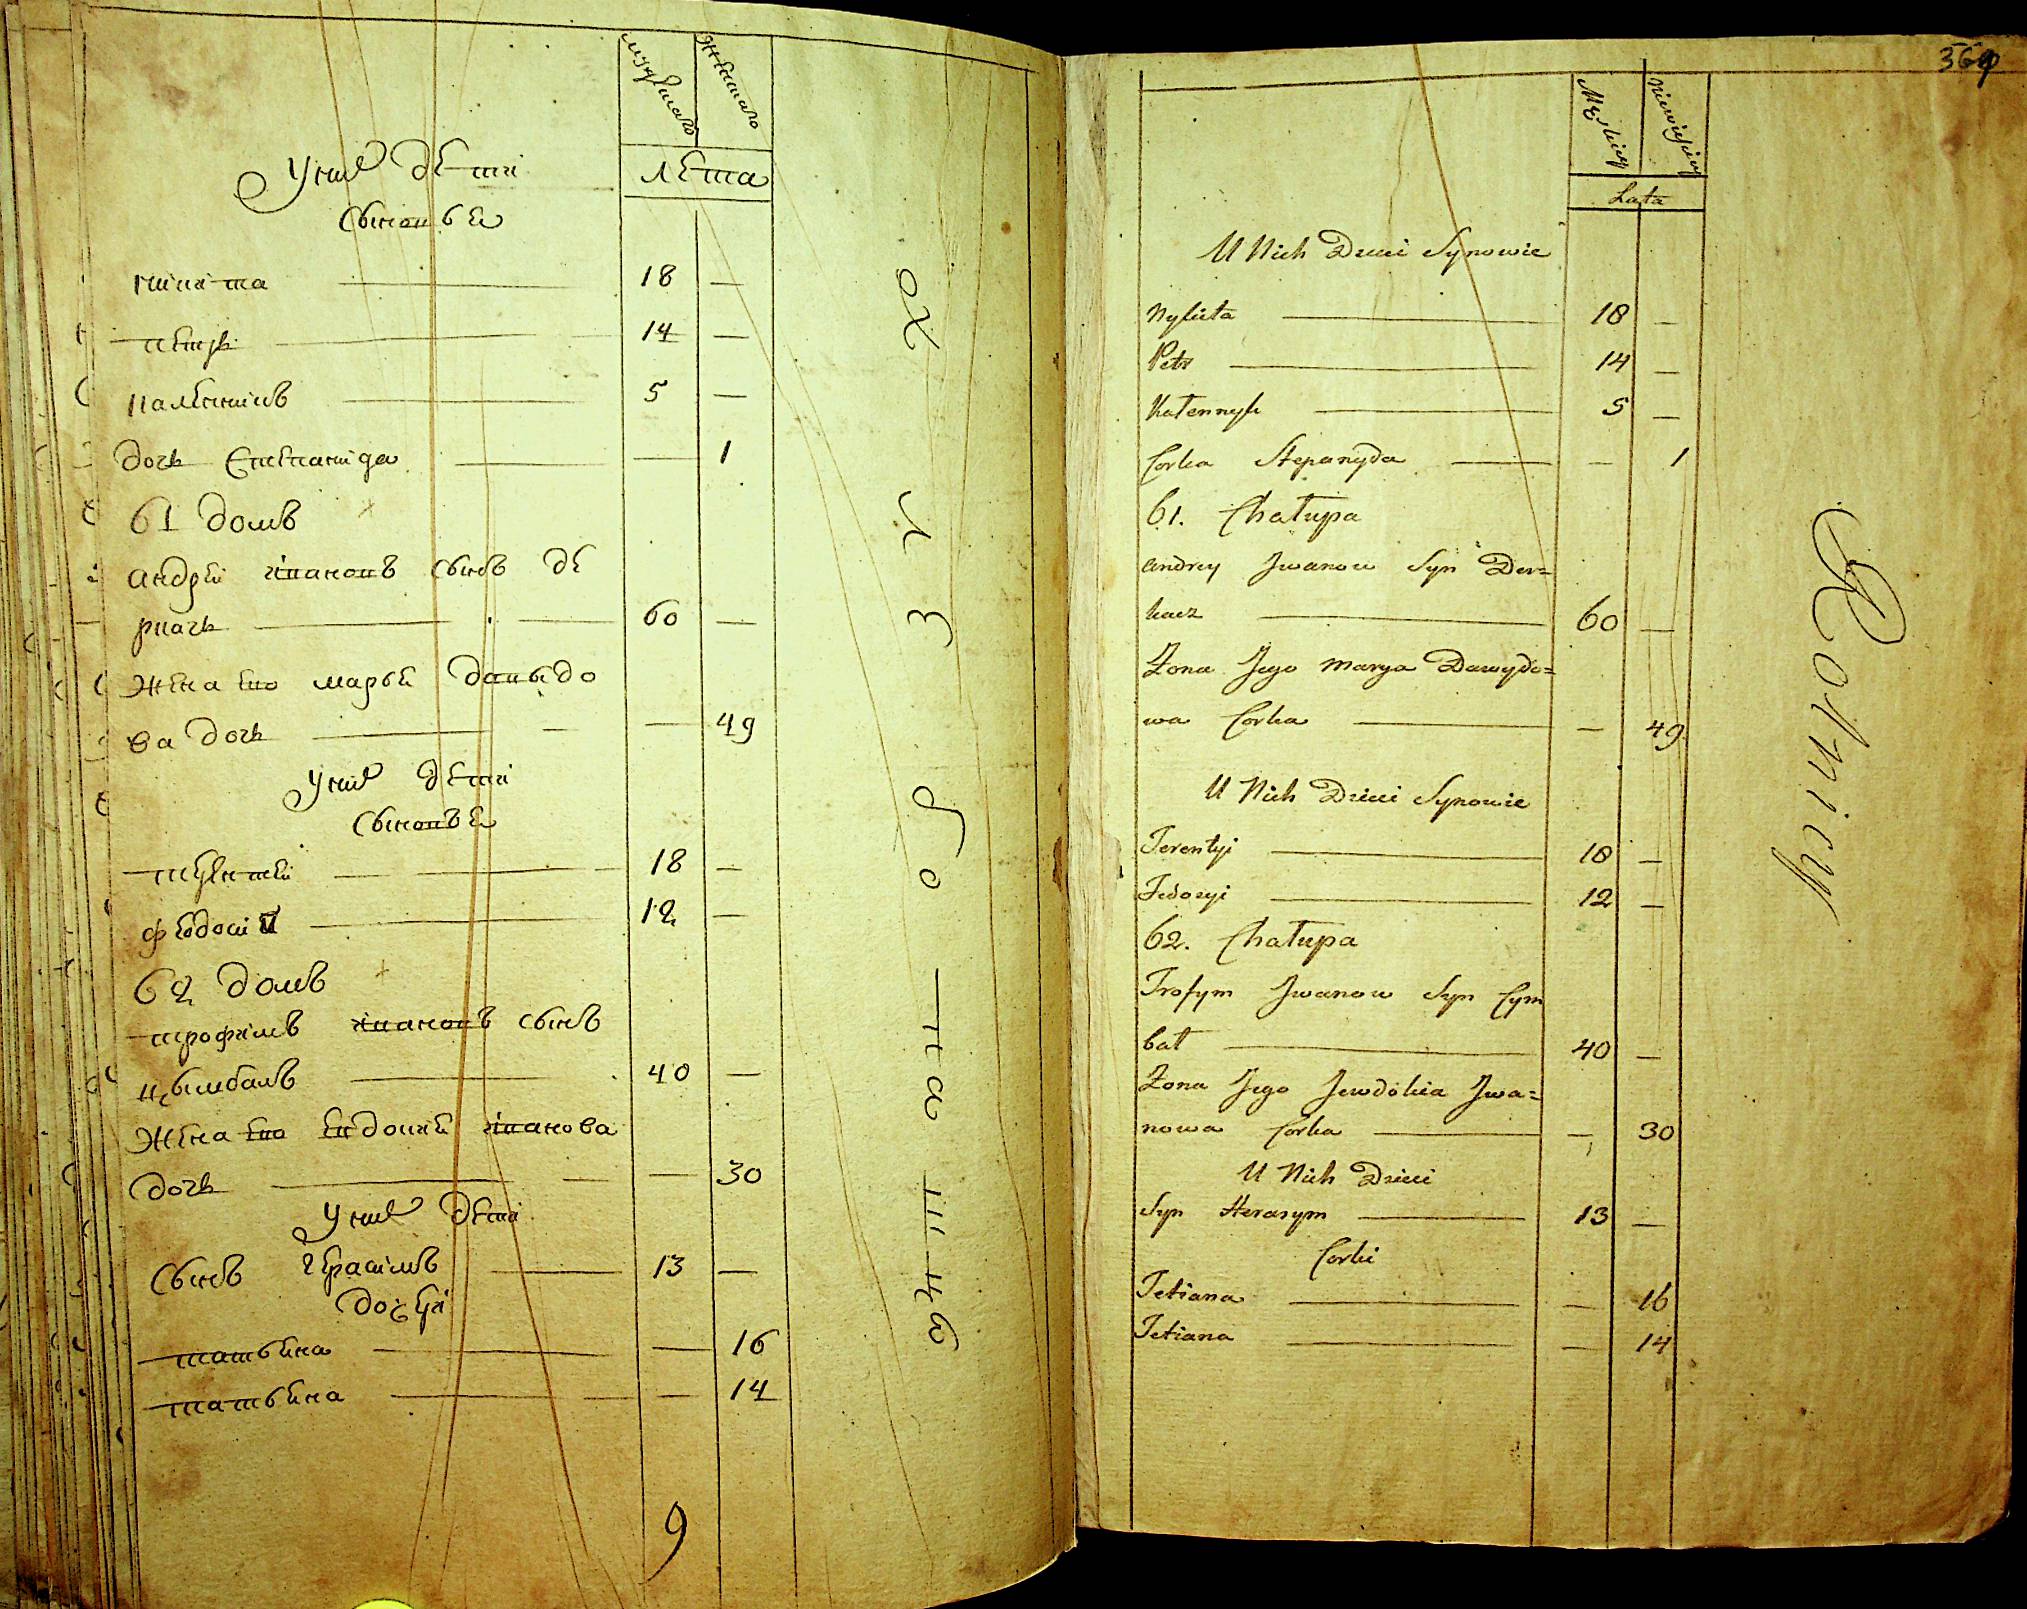 мужеска женска
лета
У них дети
сыновеи
никита 18 —
петръ 14 —
калѣникъ 5 —
дочь степанида — 1
61 домъ
андреи івановъ сынъ де
ркачь 60 —
жена ево марьи давыдо
ва дочь — 49
У них дети
сыновеи
терентеи 18 —
феодосіи 12 —
62 домъ
трофимъ івановъ сынъ
цымбалъ 40 —
жена ево евдокии іванова
дочь — 30
У них дети
сынъ герасимъ 13 —
дочери
татьяна — 16
татьяна — 14
9
364
Męskiey Niewieściey
Lata
U Nich Dzieci Synowie
Nykita 18 —
Petr 14 —
Kałennyk 5 —
Corka Stepanyda — 1
61. Chałupa
andrey Jwanow Syn Der=
kacz 60 —
Żona Jego marya Dawydo=
wa Corka — 49
U Nich Dzieci Synowie
Terentyi 18 —
Fedosyi 12 —
62. Chałupa
Trofym Jwanow Syn Cym
bał 40 —
Żona Jego Jewdokia Jwa=
nowa Corka — 30
U Nich Dzieci
Syn Herasym 13 —
Corki
Tetiana — 16
Tetiana — 14
Rolnicy